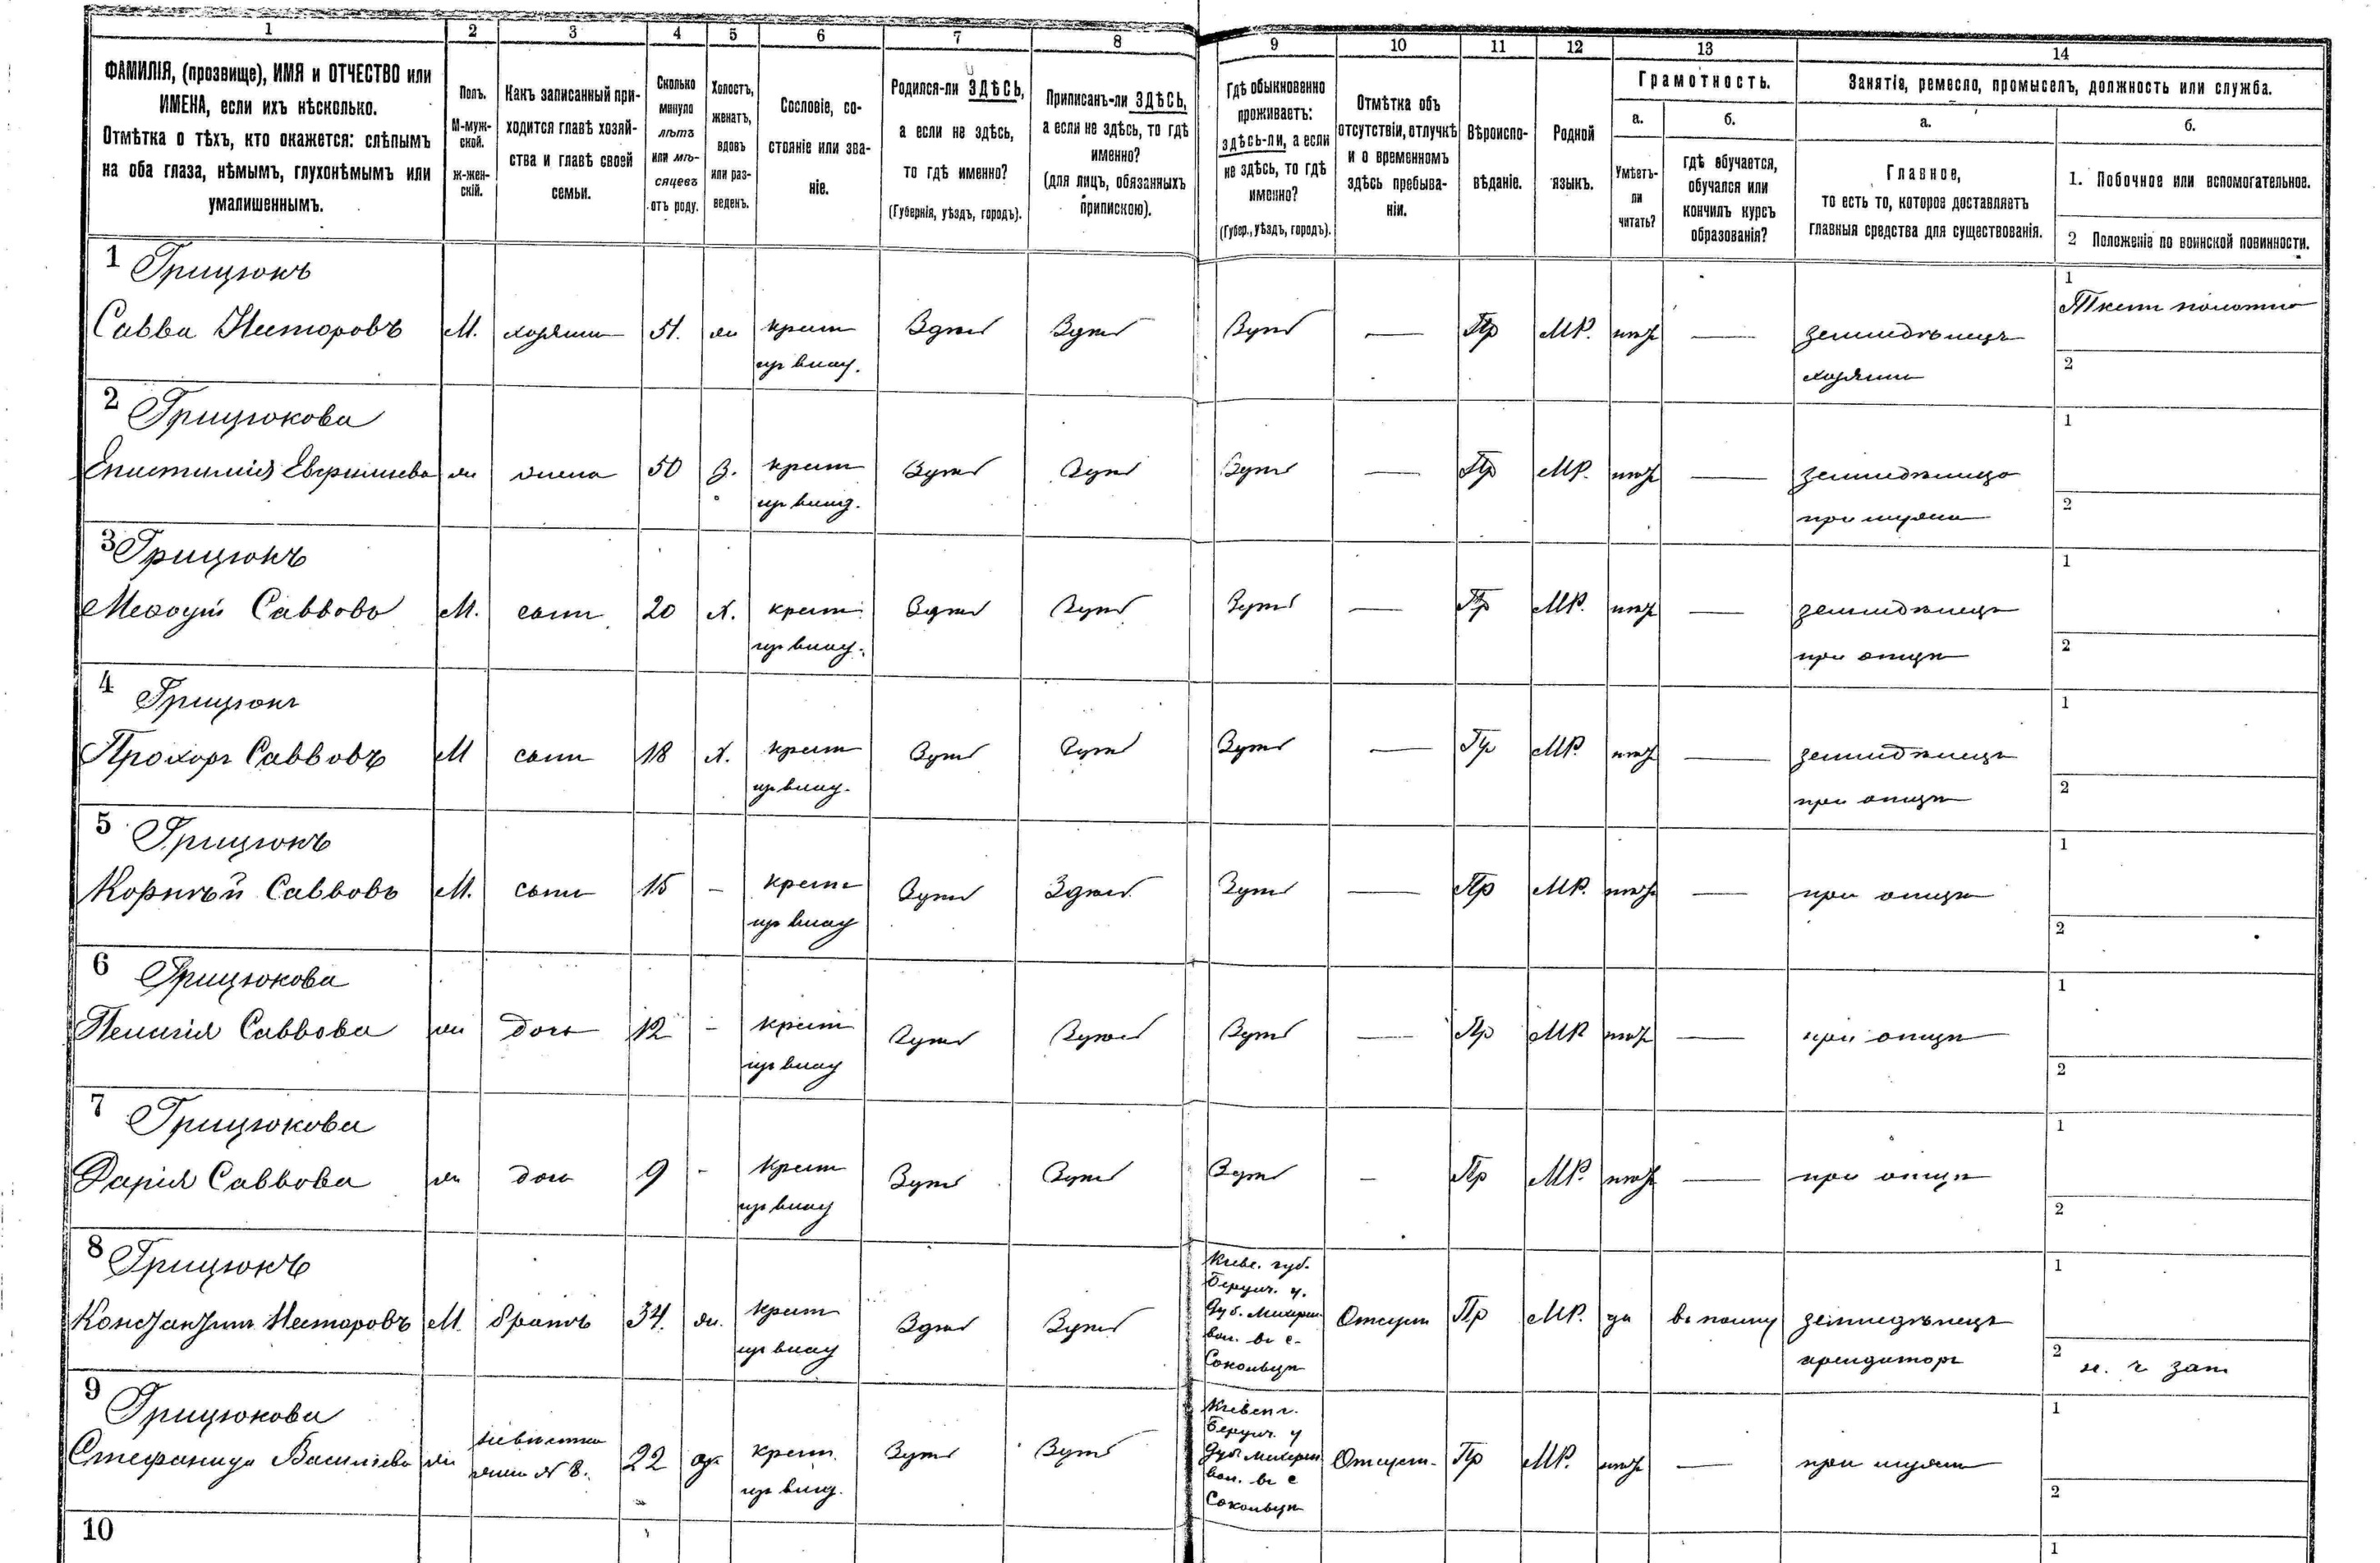 1 2 3 4 5 6 7 8 9 10 11 12 13 14
ФАМИЛІЯ, (прозвище), ИМЯ и ОТЧЕСТВО или
ИМЕНА, если ихъ нѣсколько.
Отмѣтка о тѣхъ, кто окажется: слѣпымъ
на оба глаза, нѣмымъ, глухонѣмымъ или
умалишеннымъ.
Полъ.
М-муж-
ской.
ж-жен-
скій.
Какъ записанный при-
ходится главѣ хозяй-
ства и главѣ своей
семьи.
Сколько
минуло
лѣтъ
или мѣ-
сяцевъ
отъ роду.
Холостъ,
женатъ,
вдовъ
или раз-
веденъ.
Сословіе, со-
стояніе или зва-
ніе.
Родился-ли ЗДѢСЬ,
а если не здѣсь,
то гдѣ именно?
(Губернія, уѣздъ, городъ).
Приписанъ-ли ЗДѢСЬ,
а если не здѣсь, то гдѣ
именно?
(для лицъ, обязанныхъ
припискою).
Гдѣ обыкновенно
проживаетъ:
здѣсь-ли, а если
не здѣсь, то гдѣ
именно?
(Губер., уѣздъ, городъ).
Отмѣтка объ
отсутствіи, отлучкѣ
и о временномъ
здѣсь пребыва-
ніи.
Вѣроиспо-
вѣданіе.
Родной
языкъ.
Грамотность.
а.
Умѣетъ-
ли
читать?
б.
гдѣ обучается,
обучался или
кончилъ курсъ
образованія?
Занятія, ремесло, промыселъ, должность или служба.
а.
Главное,
то есть то, которое доставляетъ
главныя средства для существованія.
б.
1. Побочное или вспомогательное.
2 Положеніе по воинской повинности.
1 Грицюкъ
Савва Несторовъ М. хозяинъ 51. ж крест Здѣсь Здѣсь Здѣсь — Пр МР. нѣт — земледѣлецъ
хозяинъ
1 Ткетъ полотно
2
2 Грицюкова
Епистимія ж жена 50 З. крест Здѣсь Здѣсь Здѣсь — Пр МР. нѣт — земледѣлица
при мужѣ
1
2
3 Грицюкъ
Меѳодій Саввовъ М. сынъ 20 х. крест Здѣсь Здѣсь Здѣсь — Пр МР. нѣт — земледѣлецъ
при отцѣ
1
2
4 Грицюкъ
Прохоръ Саввовъ М сынъ 18 х. крест Здѣсь Здѣсь Здѣсь — Пр МР. нѣт — земледѣлецъ
при отцѣ
1
2
5 Грицюкъ
Корнѣй Саввовъ М. сынъ 15 - крест Здѣсь Здѣсь Здѣсь — Пр МР. нѣт — при отцѣ
1
2
6 Грицюкова
Пелагія Саввова ж дочь 12 - крест Здѣсь Здѣсь Здѣсь — Пр МР нѣт — при отцѣ
1
2
7 Грицюкова
Дарія Саввова ж дочь 9 - крест Здѣсь Здѣсь Здѣсь — Пр МР. нѣт — при отцѣ
1
2
8 Грицюкъ
Константинъ Несторовъ М. братъ 34. ж. крест Здѣсь Здѣсь
Кіев. губ.
Бердич. у.
вол. въ с.
Отсутт Пр МР. да въ полку земледѣлецъ
арендаторъ
1
2
9 Грицюкова
Стефанида Васильева ж невѣстка
жена № 8. 22 крест. Здѣсь Здѣсь
Кіевск г.
Бердич. у
вол. въ с
Отсутт. Пр МР. нѣт — при мужѣ
1
2
10
1